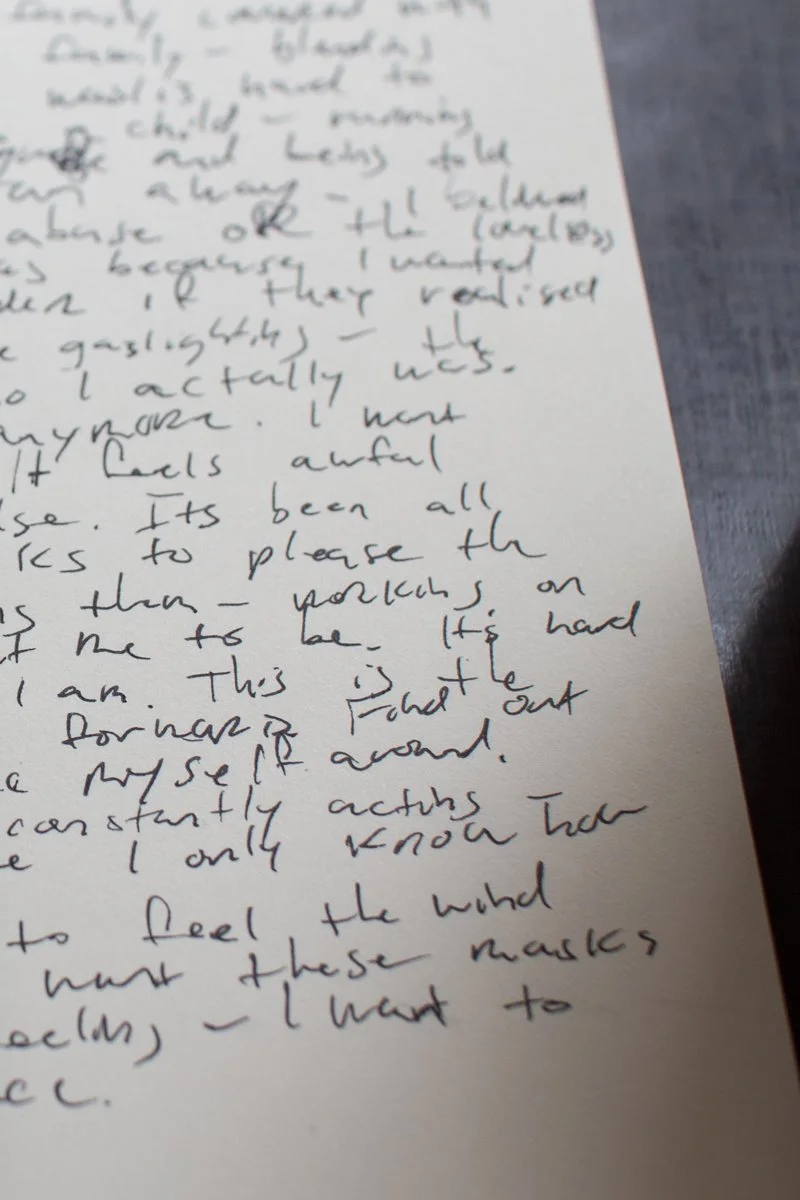 family covered with
family - blending
hard to
child - running
and being told
an away - I believed
abuse or the loveless
as because I wanted
if they realised
gaslighting - the
o I actally was.
anymore. I want
It feels awful
lse. Its been all
ks to please th
them - working on
me to be. It's hard
I am. This is the
forward Find out
myself around.
constantly acting
e I only know how
to feel the wind
want these masks
eeling - I want to